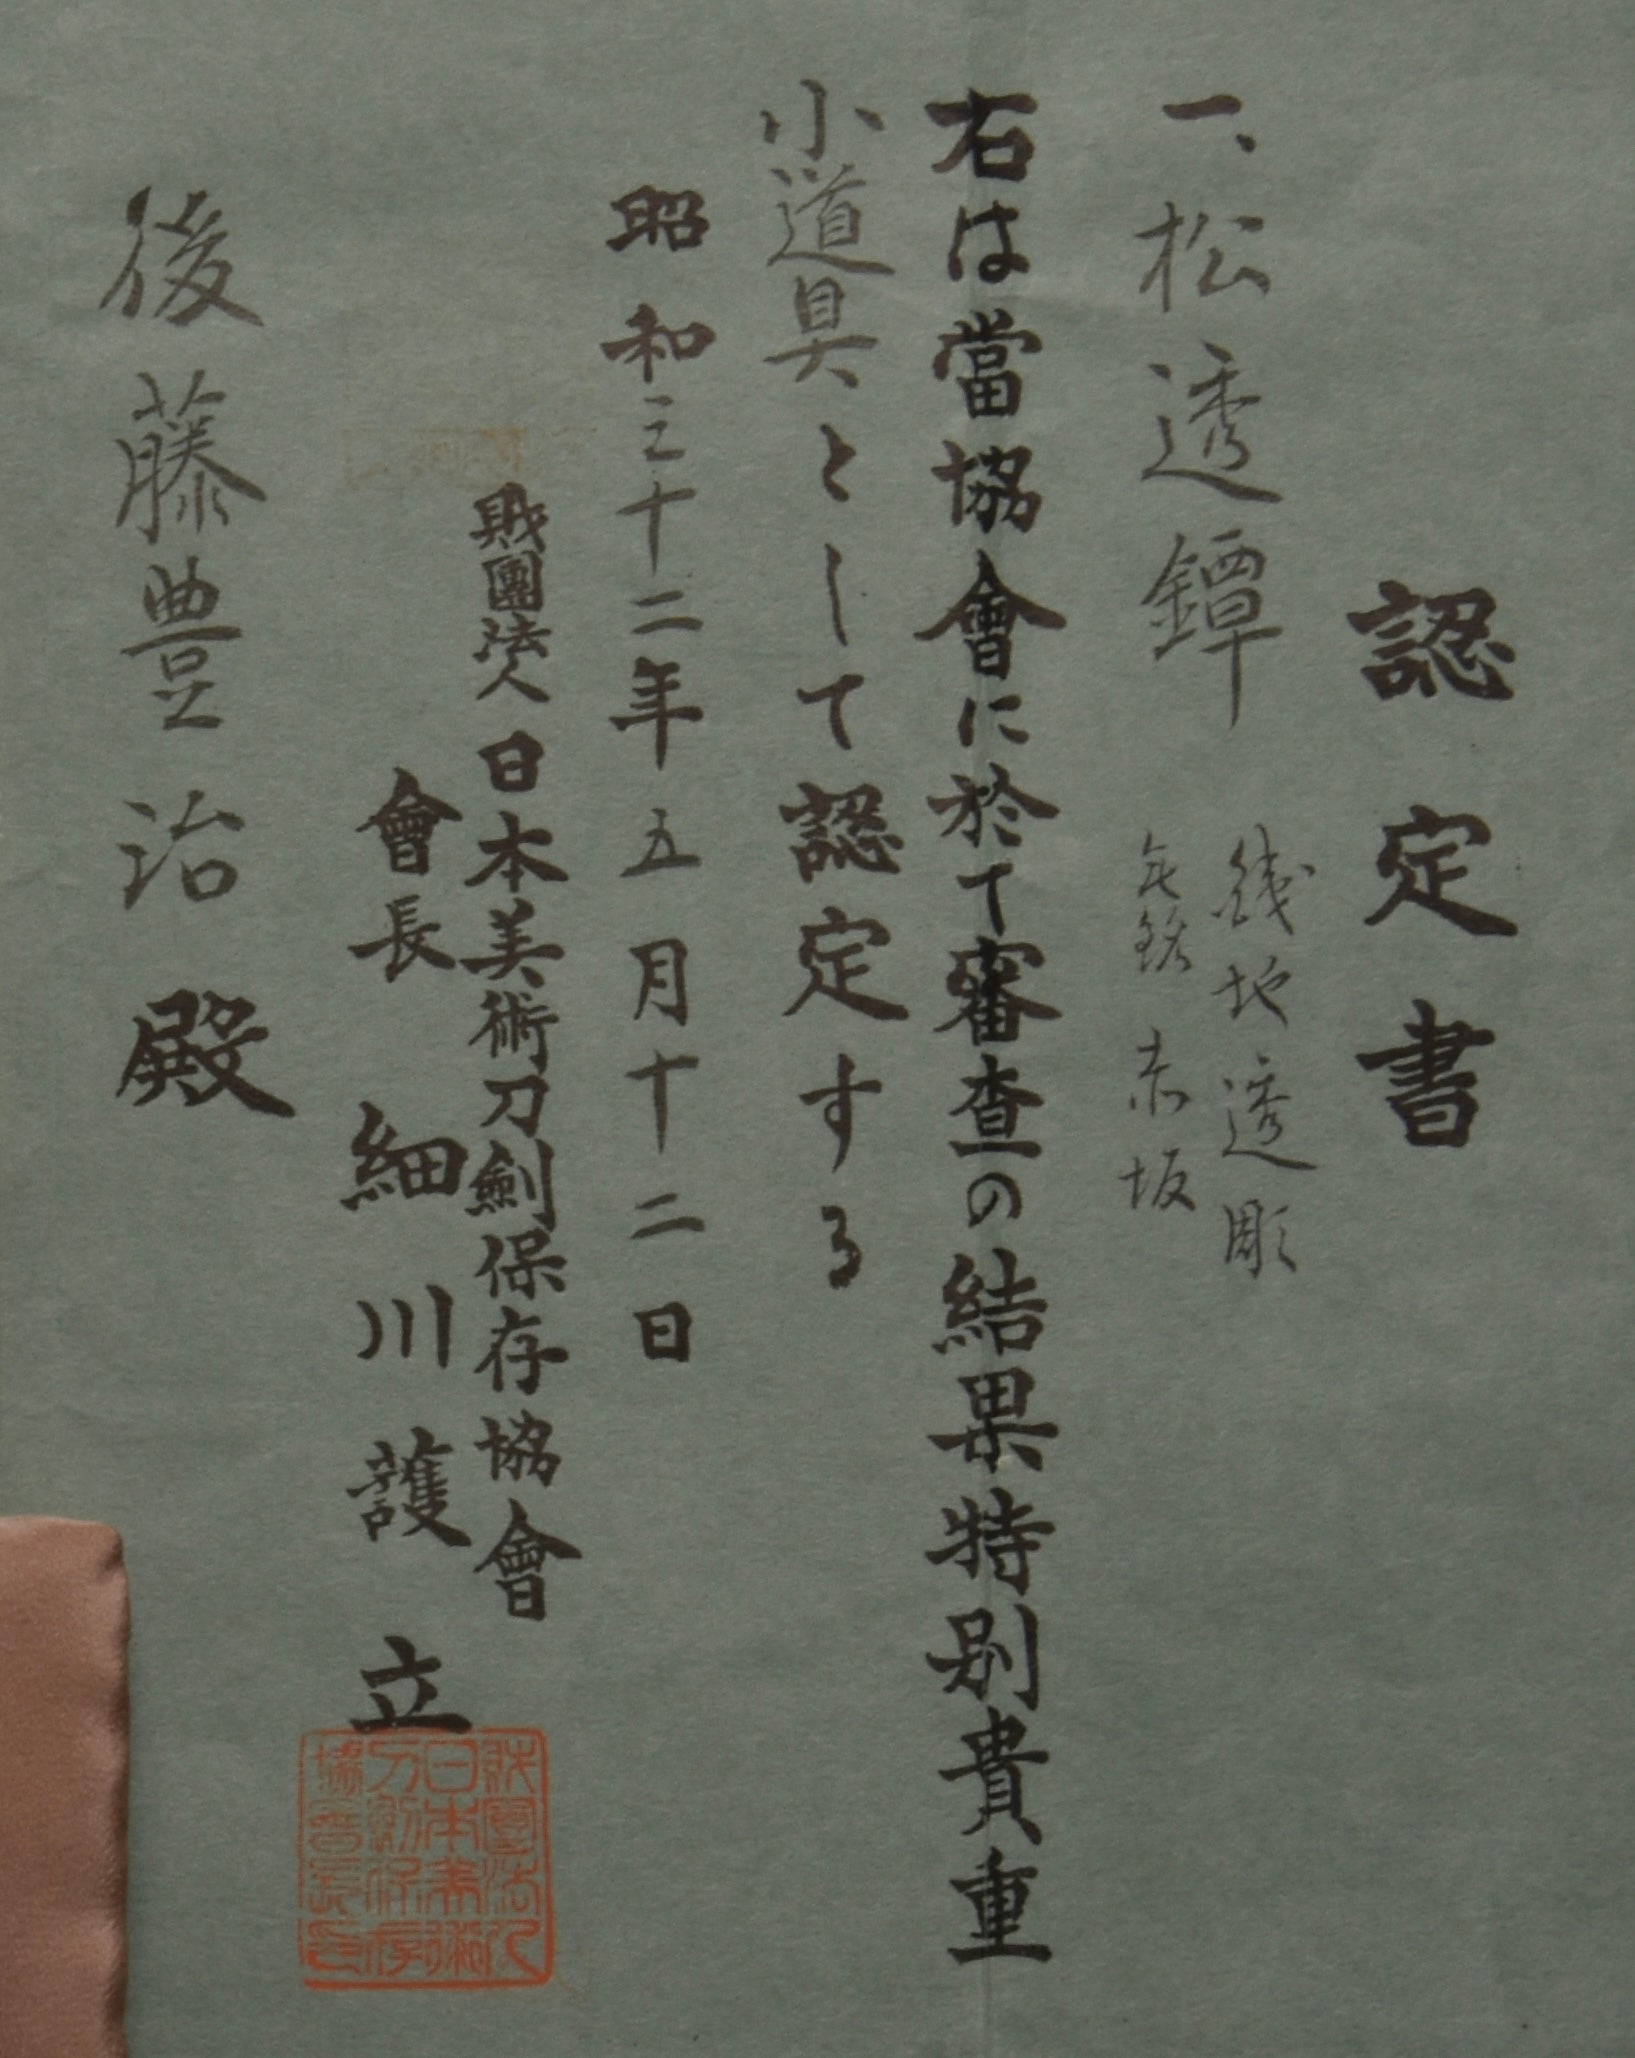 認定書
一、松透鐔
鉄地透彫
無銘 赤坂
右は當協會に於て審査の結果特別貴重
小道具として認定する
昭和三十二年五月十二日
財團法人日本美術刀劍保存協會
會長 細川護立
後藤豊治殿
財團法人
日本美術
刀劍保存
協會長印